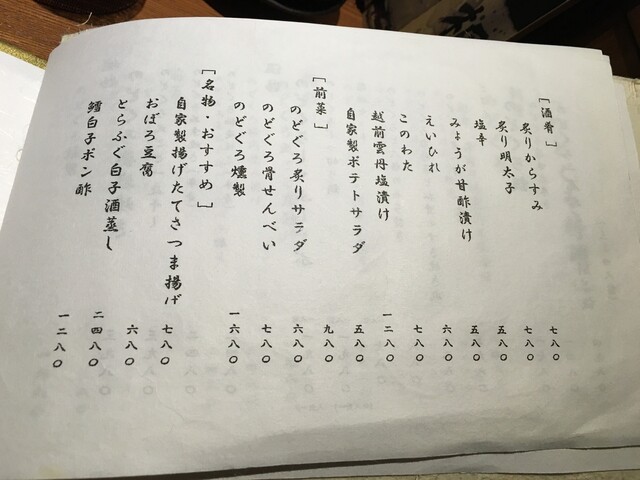 [酒肴]
炙りからすみ
炙り明太子
塩辛
みょうが甘酢漬け
えいひれ
このわた
越前雲丹塩漬け
自家製ポテトサラダ
[前菜]
のどぐろ炙りサラダ
のどぐろ骨せんべい
のどぐろ燻製
[名物・おすすめ]
自家製揚げたてさつま揚げ
おぼろ豆腐
とらふぐ白子酒蒸し
鱈白子ポン酢
七八〇
五八〇
七八〇
五八〇
六八〇
七八〇
一二八〇
五八〇
九八〇
六八〇
七八〇
一六八〇
七八〇
六八〇
二四八〇
一二八〇